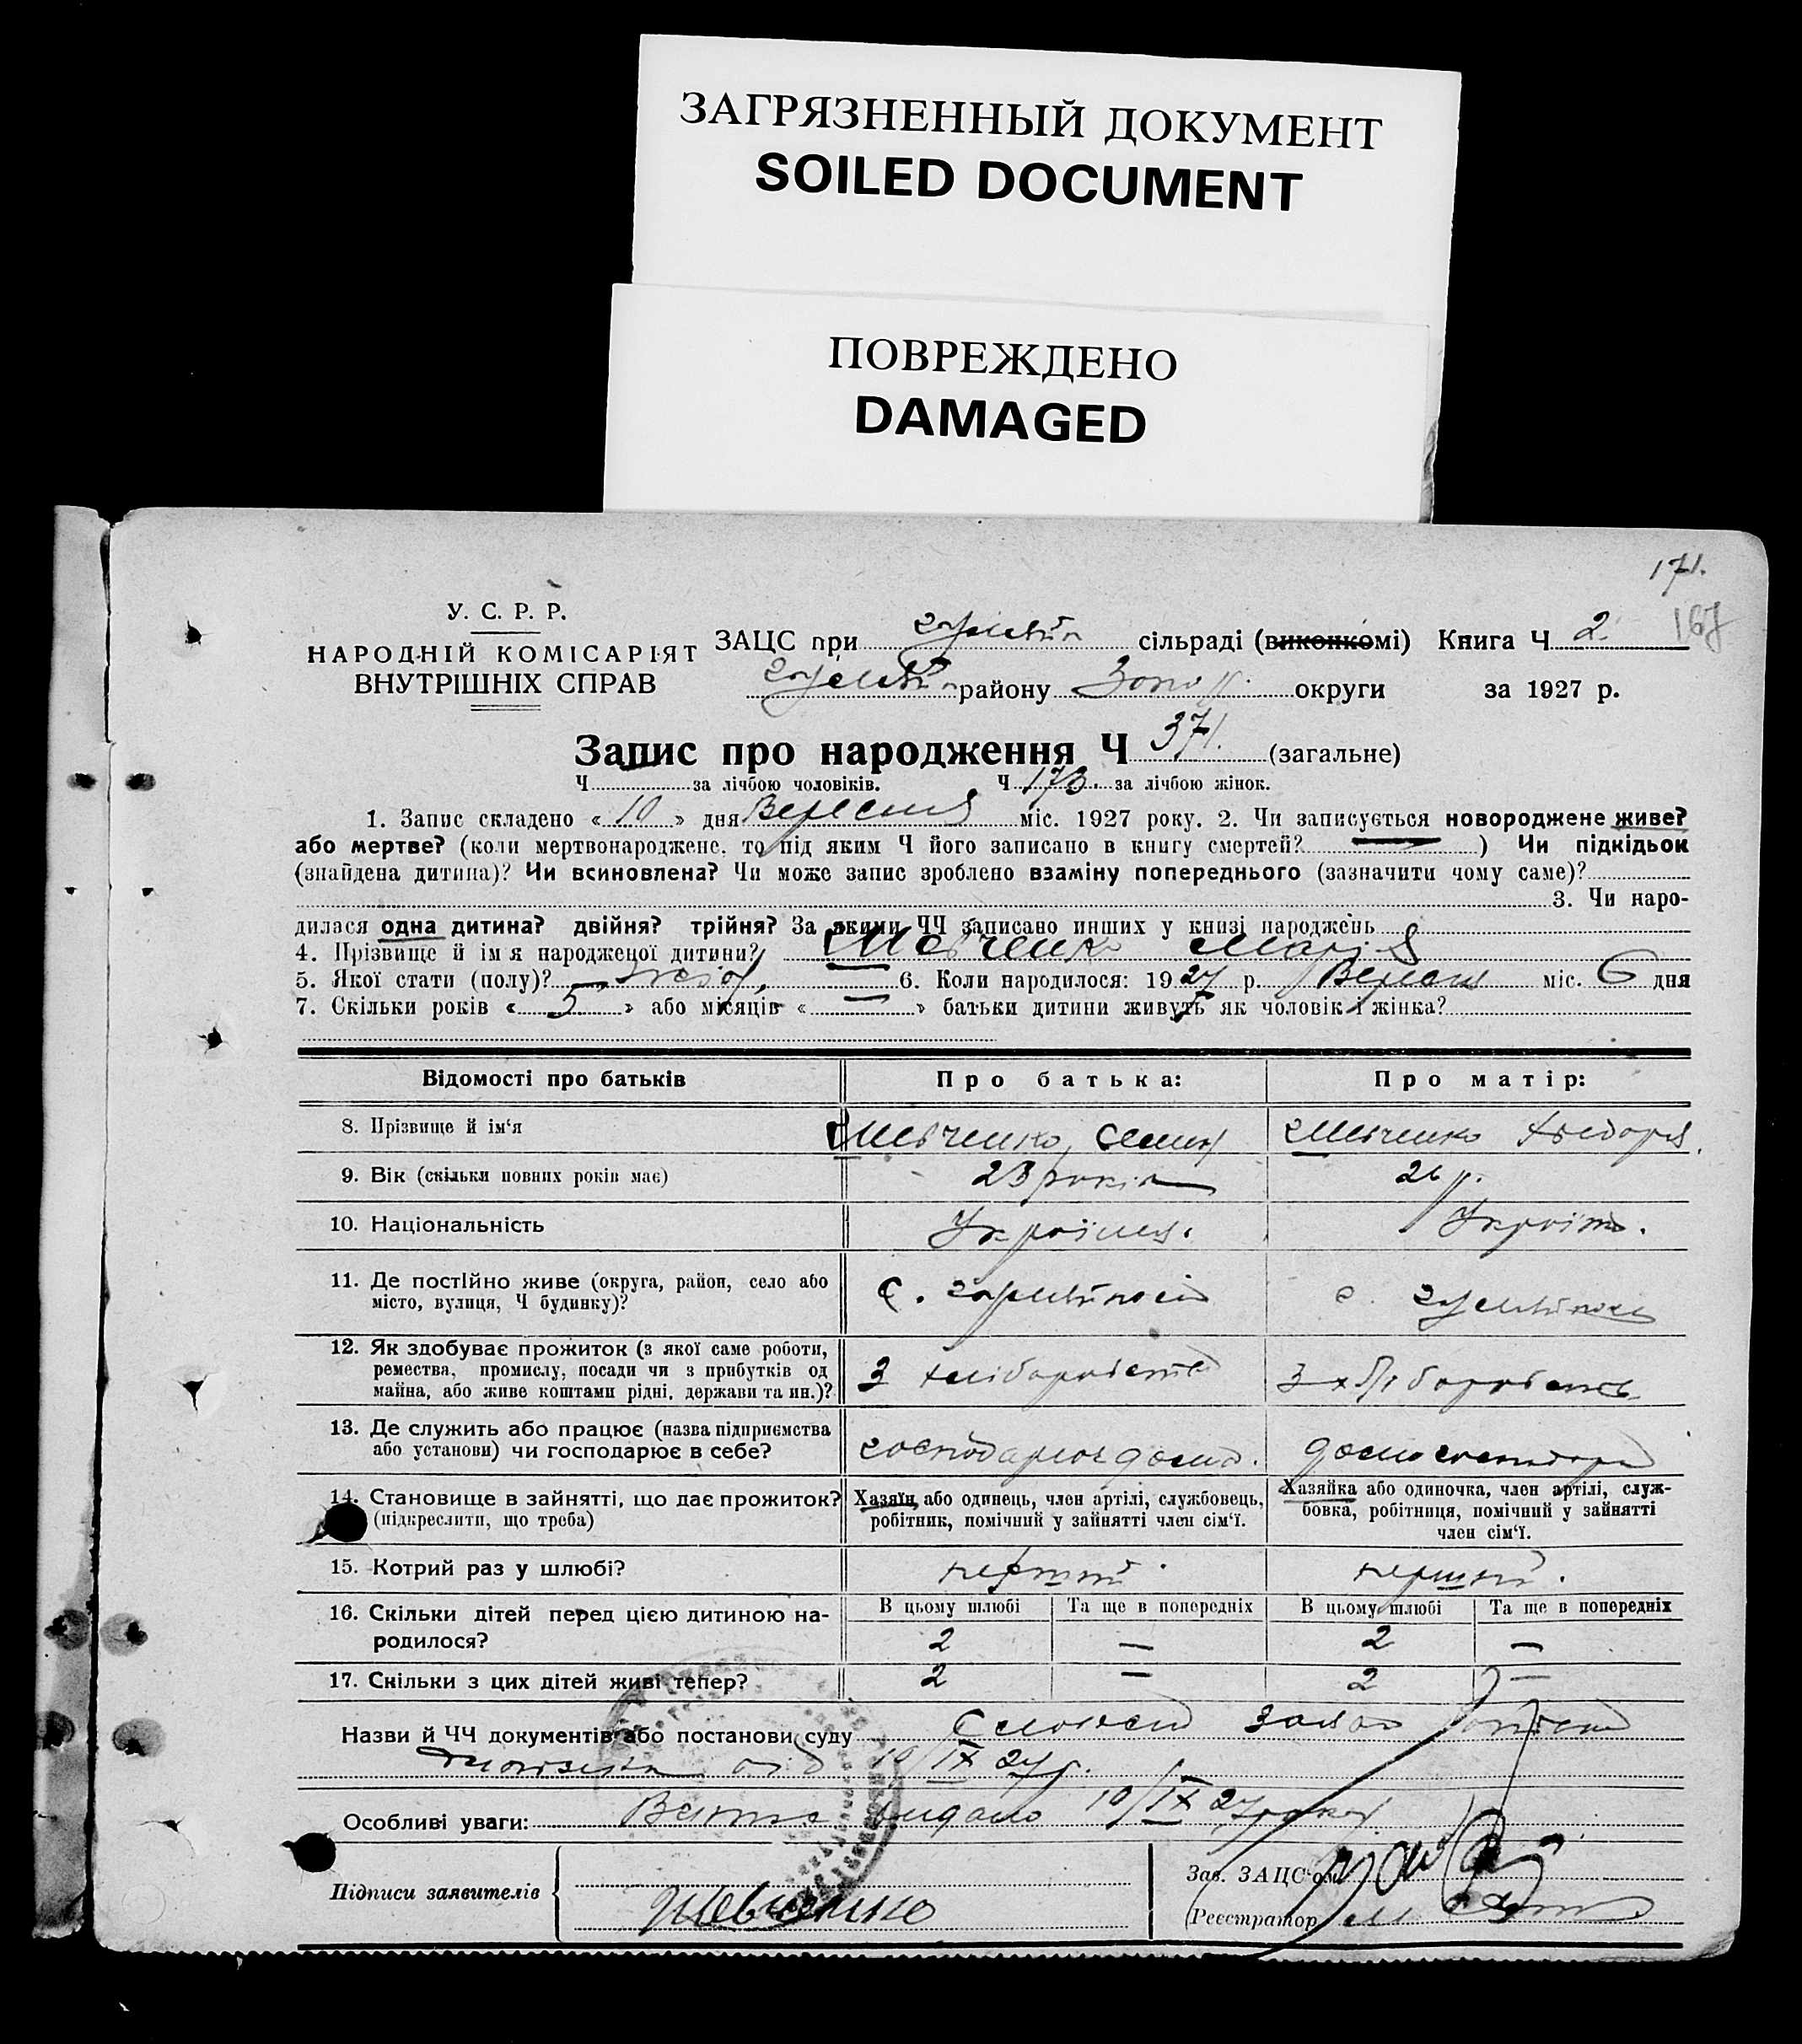 ЗАГРЯЗНЕННЫЙ ДОКУМЕНТ
SOILED DOCUMENT
ПОВРЕЖДЕНО
DAMAGED
171.
167
У. С. Р. Р.
НАРОДНІЙ КОМІСАРІЯТ
ВНУТРІШНІХ СПРАВ
ЗАЦС при сільраді (виконкомі) Книга Ч 2.
району округи за 1927 р.
Запис про народження Ч 371. (загальне)
Ч за лічбою чоловіків. Ч 173. за лічбою жінок.
1. Запис складено « 10 » дня Вересня міс. 1927 року. 2. Чи записується новороджене живе?
або мертве? (коли мертвонароджене, то під яким Ч його записано в книгу смертей? — ) Чи підкідьок
(знайдена дитина)? Чи всиновлена? Чи може запис зроблено взаміну попереднього (зазначити чому саме)?
3. Чи наро-
дилася одна дитина? двійня? трійня? За якими ЧЧ записано инших у книзі народжень
4. Прізвище й ім'я народженої дитини? Шевченко Марія
5. Якої стати (полу)? 6. Коли народилося: 1927 р. Вересня міс. 6 дня
7. Скільки років « 5 » або місяців « — » батьки дитини живуть як чоловік і жінка?
Відомості про батьків Про батька: Про матір:
8. Прізвище й ім'я Шевченко Семен Шевченко Хведора
9. Вік (скільки повних років має) 23 років 26 р.
10. Національність Українець.
11. Де постійно живе (округа, район, село або
місто, вулиця, Ч будинку)? с. с.
12. Як здобуває прожиток (з якої саме роботи,
ремества, промислу, посади чи з прибутків од
майна, або живе коштами рідні, держави та ин.)? З хліборобства З хліборобства
13. Де служить або працює (назва підприємства
або установи) чи господарює в себе? господарює дома. домогосподарка
14. Становище в зайнятті, що дає прожиток?
(підкреслити, що треба)
Хазяїн, або одинець, член артілі, службовець,
робітник, помічний у зайнятті член сім'ї.
Хазяйка або одиночка, член артілі, служ-
бовка, робітниця, помічний у зайнятті
член сім'ї.
15. Котрий раз у шлюбі? перший. перший.
16. Скільки дітей перед цією дитиною на-
родилося?
В цьому шлюбі Та ще в попередніх В цьому шлюбі Та ще в попередніх
2 — 2 —
17. Скільки з цих дітей живі тепер? 2 — 2 —
Назви й ЧЧ документів або постанови суду
від 10/IX 27р.
Особливі уваги: видано 10/IX 27 року
Підписи заявителів
Шевченко
Зав. ЗАЦС'ом
(Реєстратор)